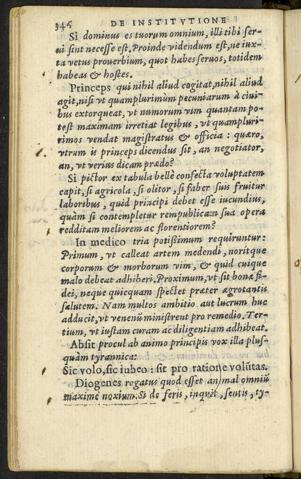 346 DE INSTITVTIONE
Si dominus es tuorum omnium, illi tibi ser-
ui sint necesse est. Proinde videndum est, ne iux-
ta vetus prouerbium, quot habes seruos, totidem
habeas & hostes.
Princeps qui nihil aliud cogitat, nihil aliud
agit, nisi vt quamplurimùm pecuniarum à ciui-
bus extorqueat, vt numorum vim quantam po-
test maximam irretiat legibus, vt quampluri-
rimos vendat magistratus & officia: quæro,
vtrum is princeps dicendus sit, an negotiator,
an, vt verius dicam prædo?
Si pictor ex tabula bellè confecta voluptatem
capit, si agricola, si olitor, si faber suis fruitur
laboribus, quid principi debet esse iucundius,
quàm si contempletur rempublicam sua opera
redditam meliorem ac florentiorem?
In medico tria potißimum requiruntur:
Primum, vt calleat artem medendi, noritque
corporum & morborum vim, & quid cuique
malo debeat adhiberi. Proximum, vt sit bonæ fi-
dei, neque quicquam spectet præter ægrotantis
salutem. Nam multos ambitio aut lucrum huc
adducit, vt venenũ ministrent pro remedio. Ter-
tium, vt iustam curam ac diligentiam adhibeat.
Absit procul ab animo principis vox illa plus-
quàm tyrannica:
Sic volo, sic iubeo: sit pro ratione volũtas.
Diogenes rogatus quod esset animal omniũ
maximè noxium. Si de feris, inquit, sentis, ty-